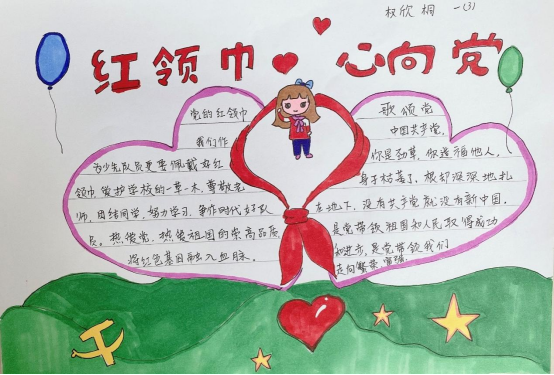 权欣桐 一(3)
红领巾 心向党
党的红领巾
我们作
为少先队员更要佩戴好红
领巾爱护学校的一草一木,尊敬老
师,团结同学,努力学习,争作时代好队
员。热爱党、热爱祖国的崇高品质
将红色基因融入血脉。
歌颂党
中国共产党,
你是劲草,你造福他人,
身子枯萎了,根却深深地扎
在地下,没有共产党就没有新中国。
是党带领祖国和人民取得成功
和进步,是党带领我们
走向繁荣富强